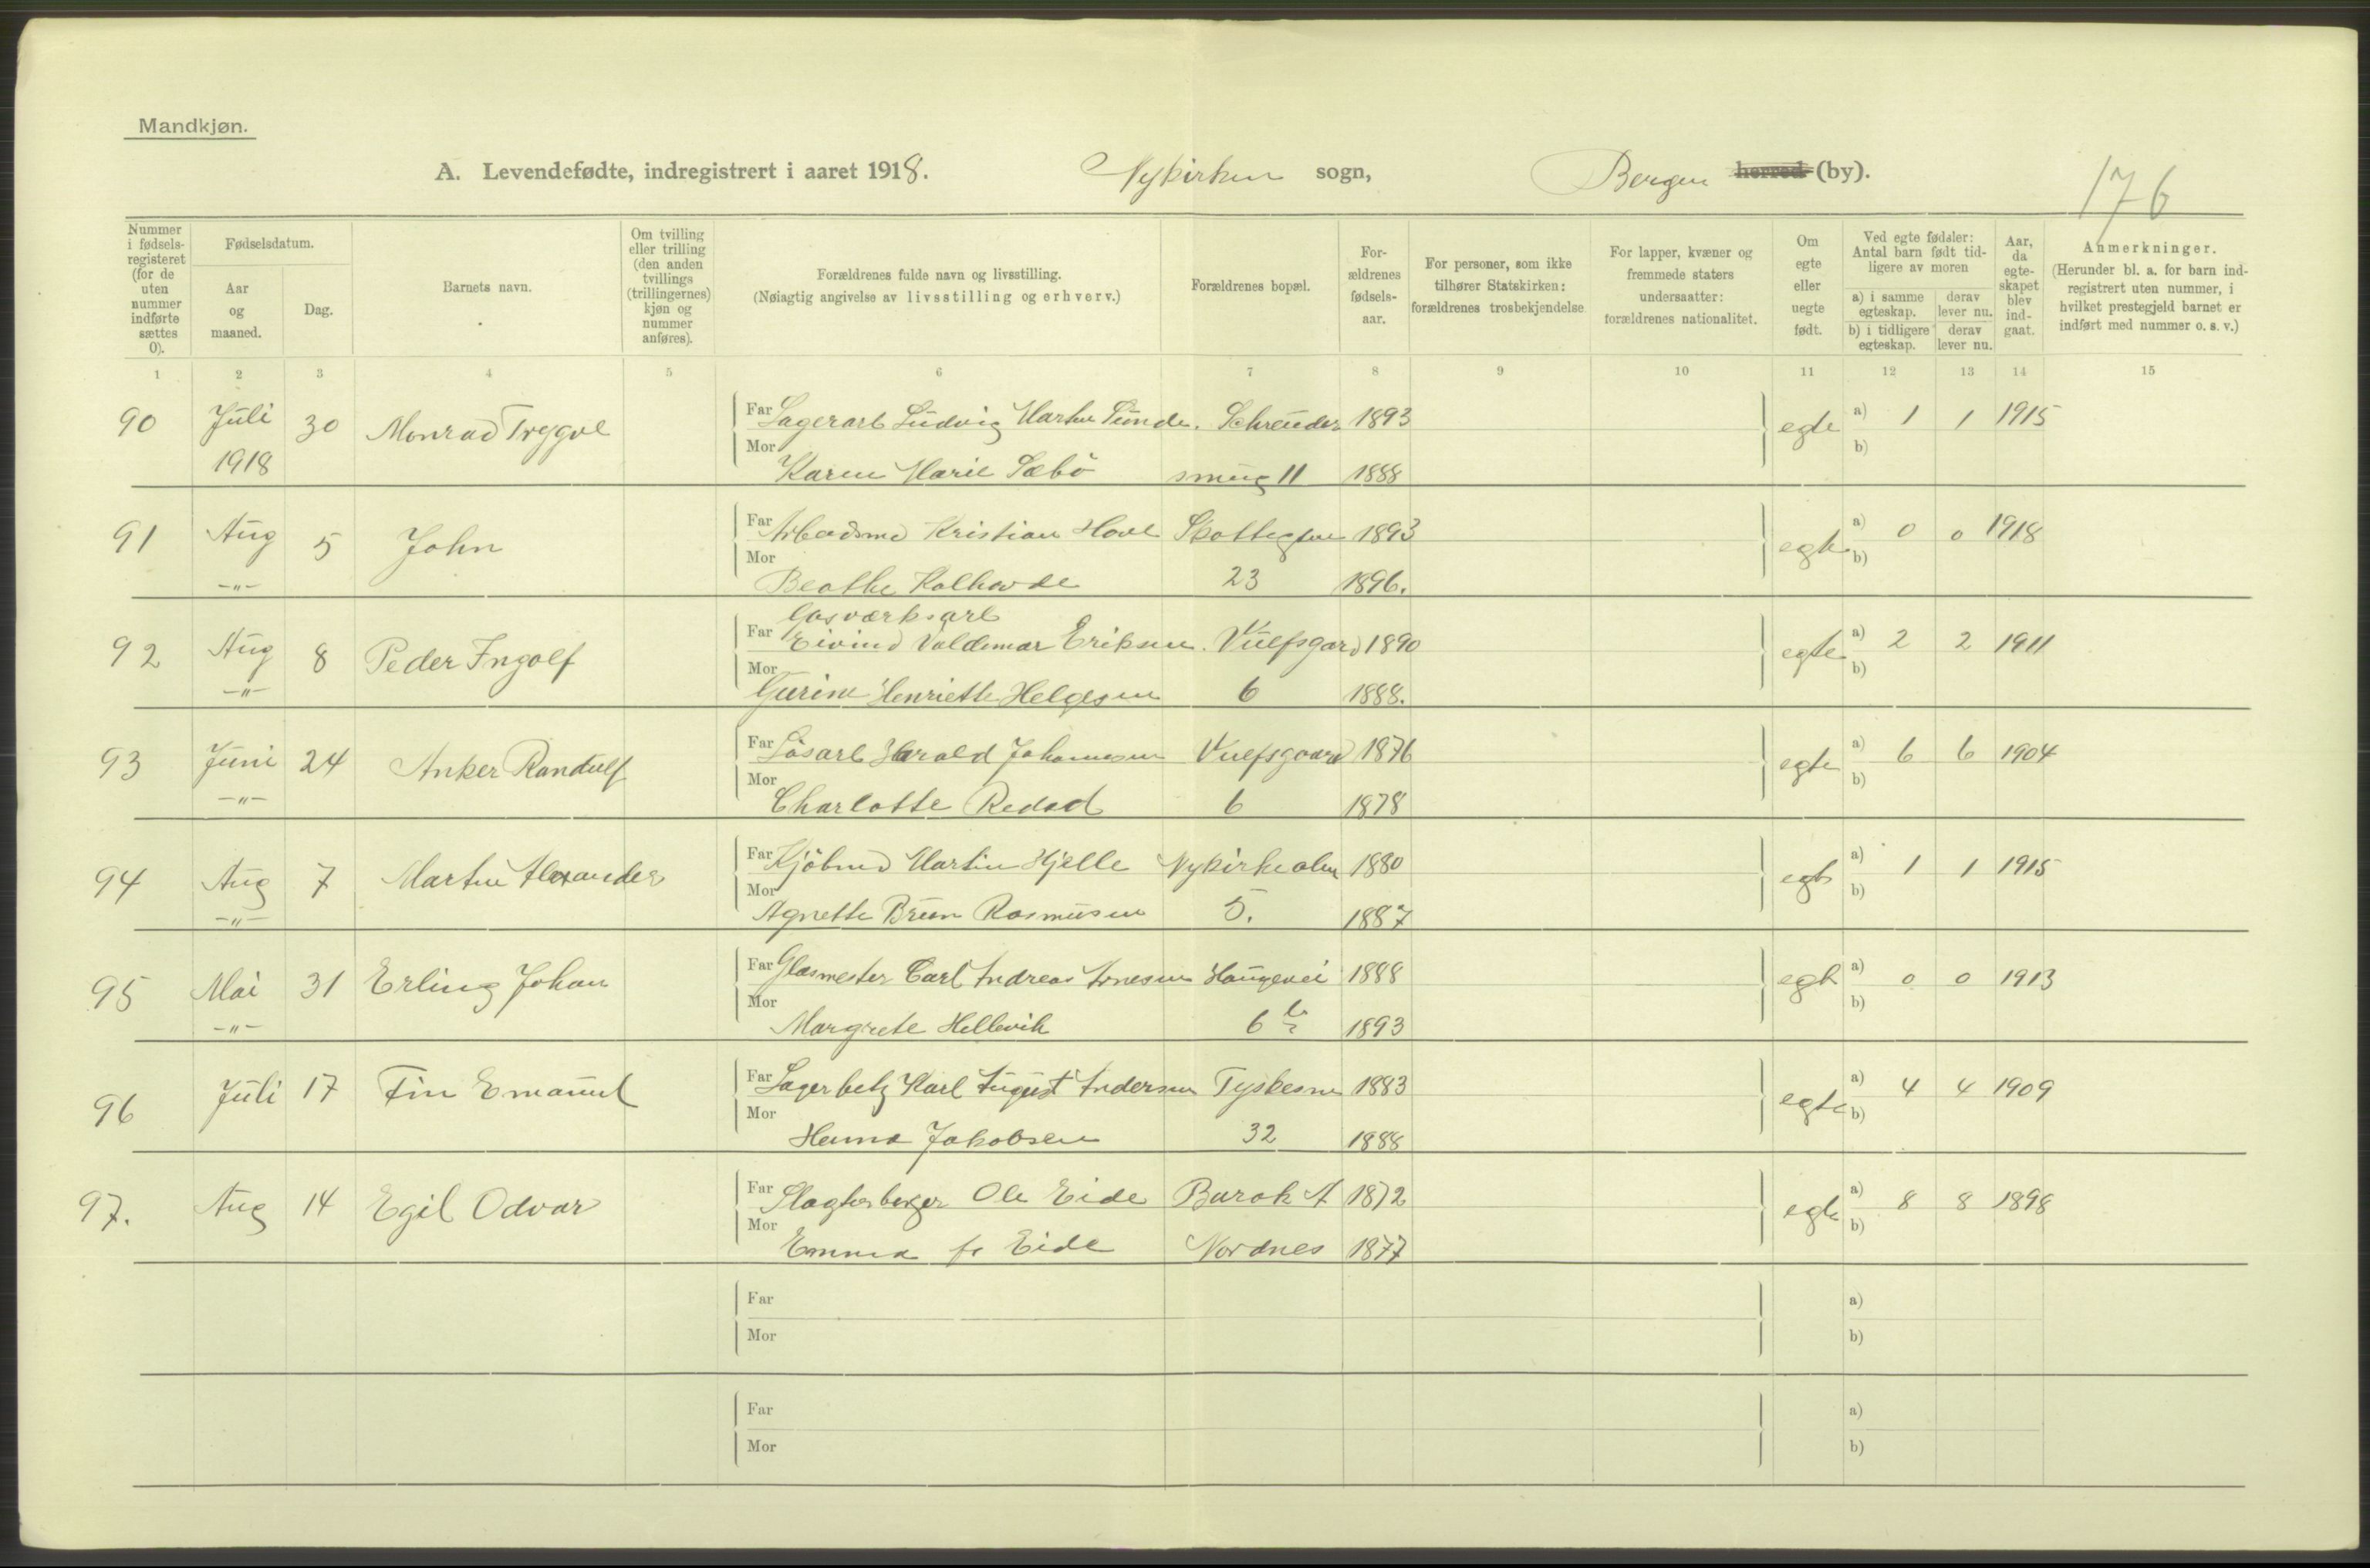 Mandkjøn.
A. Levendefødte, indregistrert i aaret 1918. Nykirken sogn, Bergen herred (by).
176
Nummer i fødselsregisteret (for de uten nummer indførte sættes 0).
Fødselsdatum.
Aar og maaned.
Dag.
Barnets navn.
Om tvilling eller trilling (den anden tvillings (trillingernes) kjøn og nummer anføres).
Forældrenes fulde navn og livsstilling.
(Nøiagtig angivelse av livsstilling og erhverv.)
Forældrenes bopæl.
Forældrenes fødselsaar.
For personer, som ikke tilhører Statskirken: forældrenes trosbekjendelse
For lapper, kvæner og fremmede staters undersaatter: forældrenes nationalitet.
Om egte eller uegte født.
Ved egte fødsler: Antal barn født tidligere av moren
a) i samme egteskap. derav lever nu.
b) i tidligere egteskap. derav lever nu.
Aar, da egteskapet blev indgaat.
Anmerkninger.
(Herunder bl. a. for barn indregistrert uten nummer, i hvilket prestegjeld barnet er indført med nummer o. s. v.)
1 2 3 4 5 6 7 8 9 10 11 12 13 14 15
90 Juli 30 Monrad Trygve Far Lagerarb Ludvig Martin Sunde. Schreuder 1893 egte a) 1 1 1915
1918 Mor Karen Marie Sæbö smug 11 1888 b)
91 Aug 5 John Far Arbeidsmd Kristian Hove Skottegten 1893 egte a) 0 0 1918
-"- Mor Beathe Kolhovde 23 1896. b)
Gasværksarb
92 Aug 8 Peder Ingolf Far Eivind Valdemar Eriksen. Vulfsgard 1890 egte a) 2 2 1911
-"- Mor Gurine Henriette Helgesen 6 1888. b)
93 Juni 24 Anker Randulf Far Løsarb Harald Johannesen Vulfsgaard 1876 egte a) 6 6 1904
-"- Mor Charlotte 6 1878 b)
94 Aug 7 Martin Alexander Far Kjøbmd Martin Hjelle Nykirkealm 1880 egte a) 1 1 1915
-"- Mor Agnette Brun Rasmusen 5. 1887 b)
95 Mai 31 Erling Johan Far Glasmester Carl Andreas Arnesen Haugevei 1888 egte a) 0 0 1913
-"- Mor Margrete Hellevik 6 b 1893 b)
96 Juli 17 Fin Emanuel Far Lagerbetj Karl August Andersen Tyskesm 1883 egte a) 4 4 1909
Mor Hanna Jakobsen 32 1888 b)
97. Aug 14 Egil Odvar Far Ole Eide Barak A 1872 egte a) 8 8 1898
Mor Emma fr Eide Nordnes 1877 b)
Far a)
Mor b)
Far a)
Mor b)